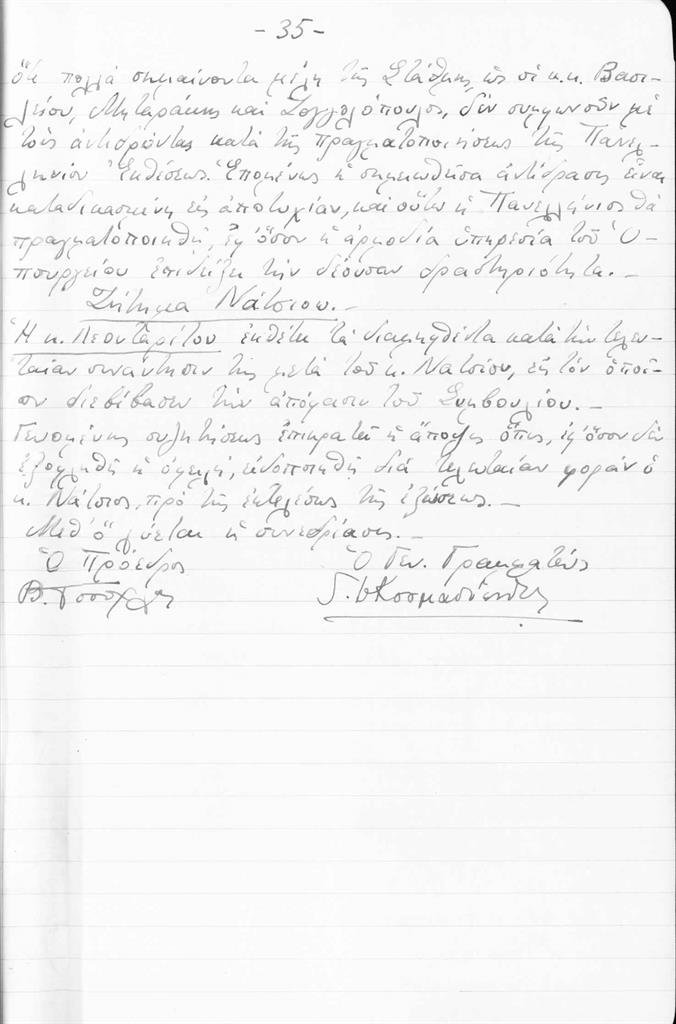 - 35 -
ὅτι πολλὰ σημαίνοντα μέλη τῆς Στάθμης, ὡς οἱ κ.κ. Βασι-
λείου, Μηταράκης καὶ Ζογγολόπουλος, δὲν συμφωνοῦν μὲ
τοὺς ἀντιδρῶντας κατὰ τῆς πραγματοποιήσεως τῆς Πανελ-
ληνίου Ἐκθέσεως. Ἑπομένως ἡ σημειωθεῖσα ἀντίδρασις εἶναι
καταδικασμένη εἰς ἀποτυχίαν, καὶ οὕτω ἡ Πανελλήνιος θὰ
πραγματοποιηθῇ, ἐφ' ὅσον ἡ ἁρμοδία ὑπηρεσία τοῦ Ὑ-
πουργείου ἐπιδείξει τὴν δέουσαν δραστηριότητα. -
Ζήτημα Νάτσιου. -
Ἡ κ. Λεονταρίτου ἐκθέτει τὰ διαμειφθέντα κατὰ τὴν τελευ-
ταίαν συνάντησιν της μετὰ τοῦ κ. Νατσίου, εἰς τὸν ὁποῖ-
ον διεβίβασεν τὴν ἀπόφασιν τοῦ Συμβουλίου. -
Γενομένης συζητήσεως ἐπικρατεῖ ἡ ἄποψις ὅπως, ἐφ' ὅσον δὲν
ἐξοφληθῇ ἡ ὀφειλή, εἰδοποιηθῇ διὰ τελευταίαν φορὰν ὁ
κ. Νάτσιος, πρὸ τῆς ἐκτελέσεως τῆς ἐξώσεως. -
Μεθ' ὃ λύεται ἡ συνεδρίασις. -
Ὁ Πρόεδρος Ὁ Γεν. Γραμματεὺς